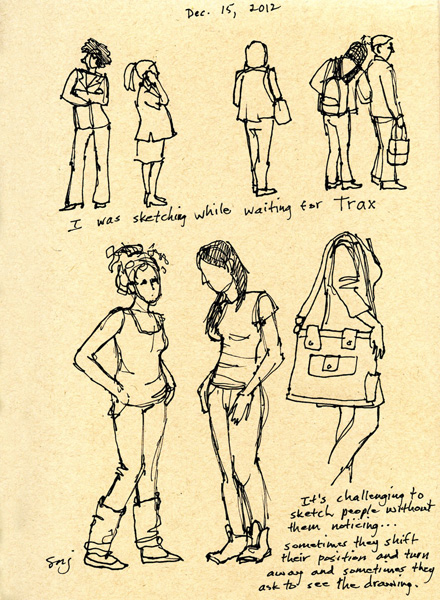 Dec. 15, 2012
I was sketching while waiting for Trax
It's challenging to
sketch people without
them noticing...
sometimes they shift
their position and turn
away and sometimes they
ask to see the drawing.